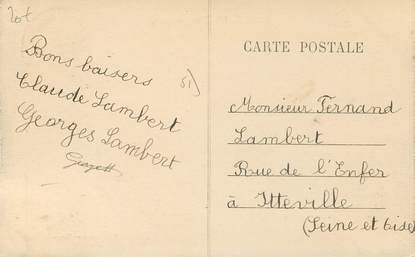 Bons baisers
Claude Lambert
Georges Lambert
CARTE POSTALE
Monsieur Fernand
Lambert
Rue de l'Enfer
à Itteville
(Seine et Oise)